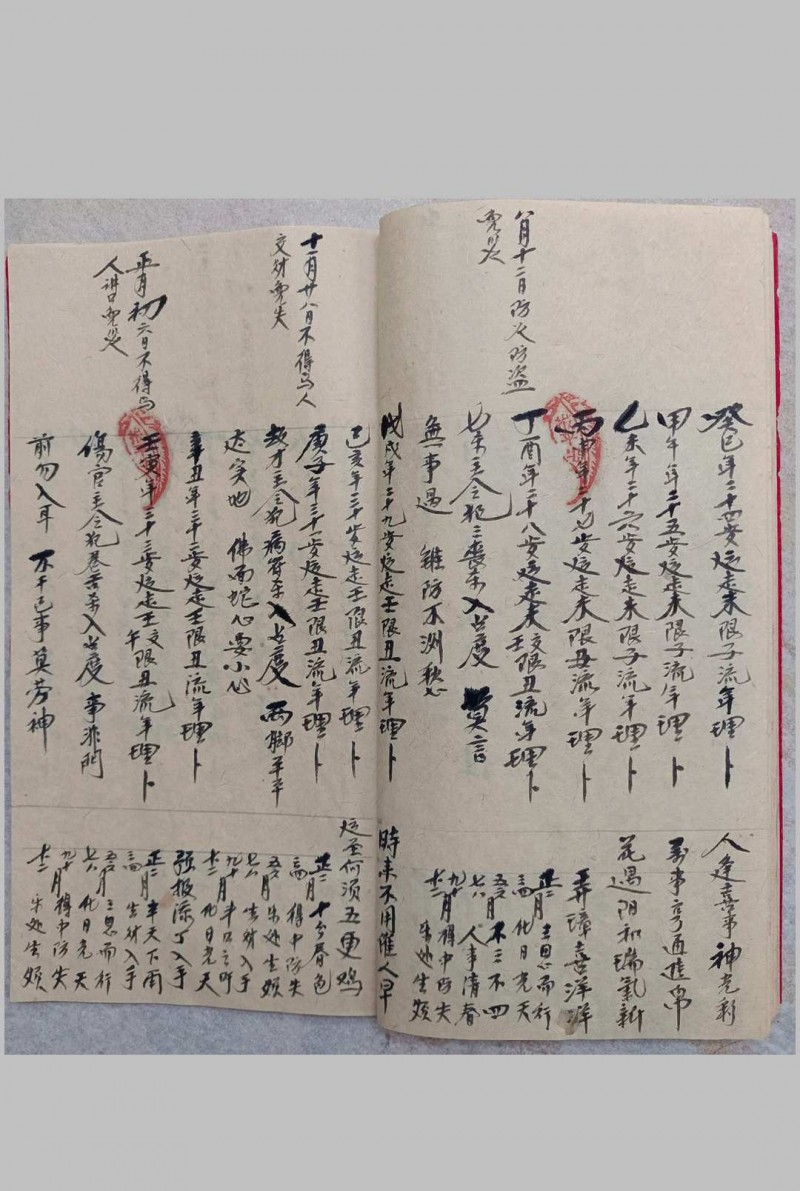 八月十二日防火防盗
免災
癸巳年二十四岁运走未限子流年理卜
甲午年二十五岁运走未限子流年理卜
乙未年二十六岁运走未限子流年理卜
丙申年二十七岁运走未限丑流年理卜
丁酉年二十八岁运走未交壬限丑流年理卜
主令犯三喪杀入岂度 莫言
無事過 锥防不測愁
人逢喜事神光彩
萬事亨通進帛
花遇阳和瑞氣新
弄璋喜洋洋
正二 三思而行
三四 化日光天
五六月 不三不四
七八 人事清春
九十月 得中防失
十二 朱处生烦
戊戌年二十九岁运走壬限丑流年理卜
時来不用催人早
十一月廿八日不得与人
交財免失
正月初六日不得与
人讲口免災
己亥年三十岁运走壬限丑流年理卜
庚子年三十一岁运走壬限丑流年理卜
主令犯病符杀入岂度 两脚平平
达实地 佛面蛇心要小心
辛丑年三十二岁运走壬限丑流年理卜
壬寅年三十三岁运走壬交午限丑流年理卜
傷官主令犯卷舌杀入岂度 事非門
前勿入耳 不干己事莫劳神
运至何须五更鸡
正二 十分春色
三四 得中防失
五六月 朱处生烦
七八 生財入手
九十 半口立听
十二 化日光天
强报添丁入手
正二 半天下雨
三四 生財入手
五六月 三思而行
七八 化日光天
九十月 得中防失
十二 朱处生烦